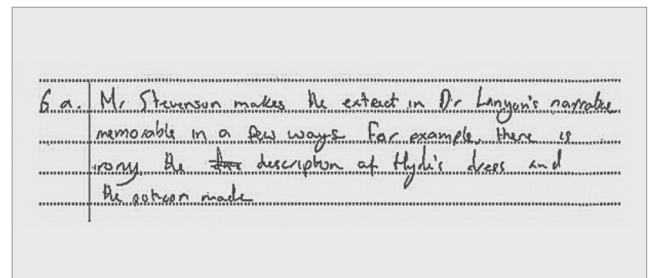 6 a. Mr Stevenson makes the extract in Dr Lanyon's narrative
memorable in a few ways. For example, there is
irony, the description of Hyde's dress and
the potion made